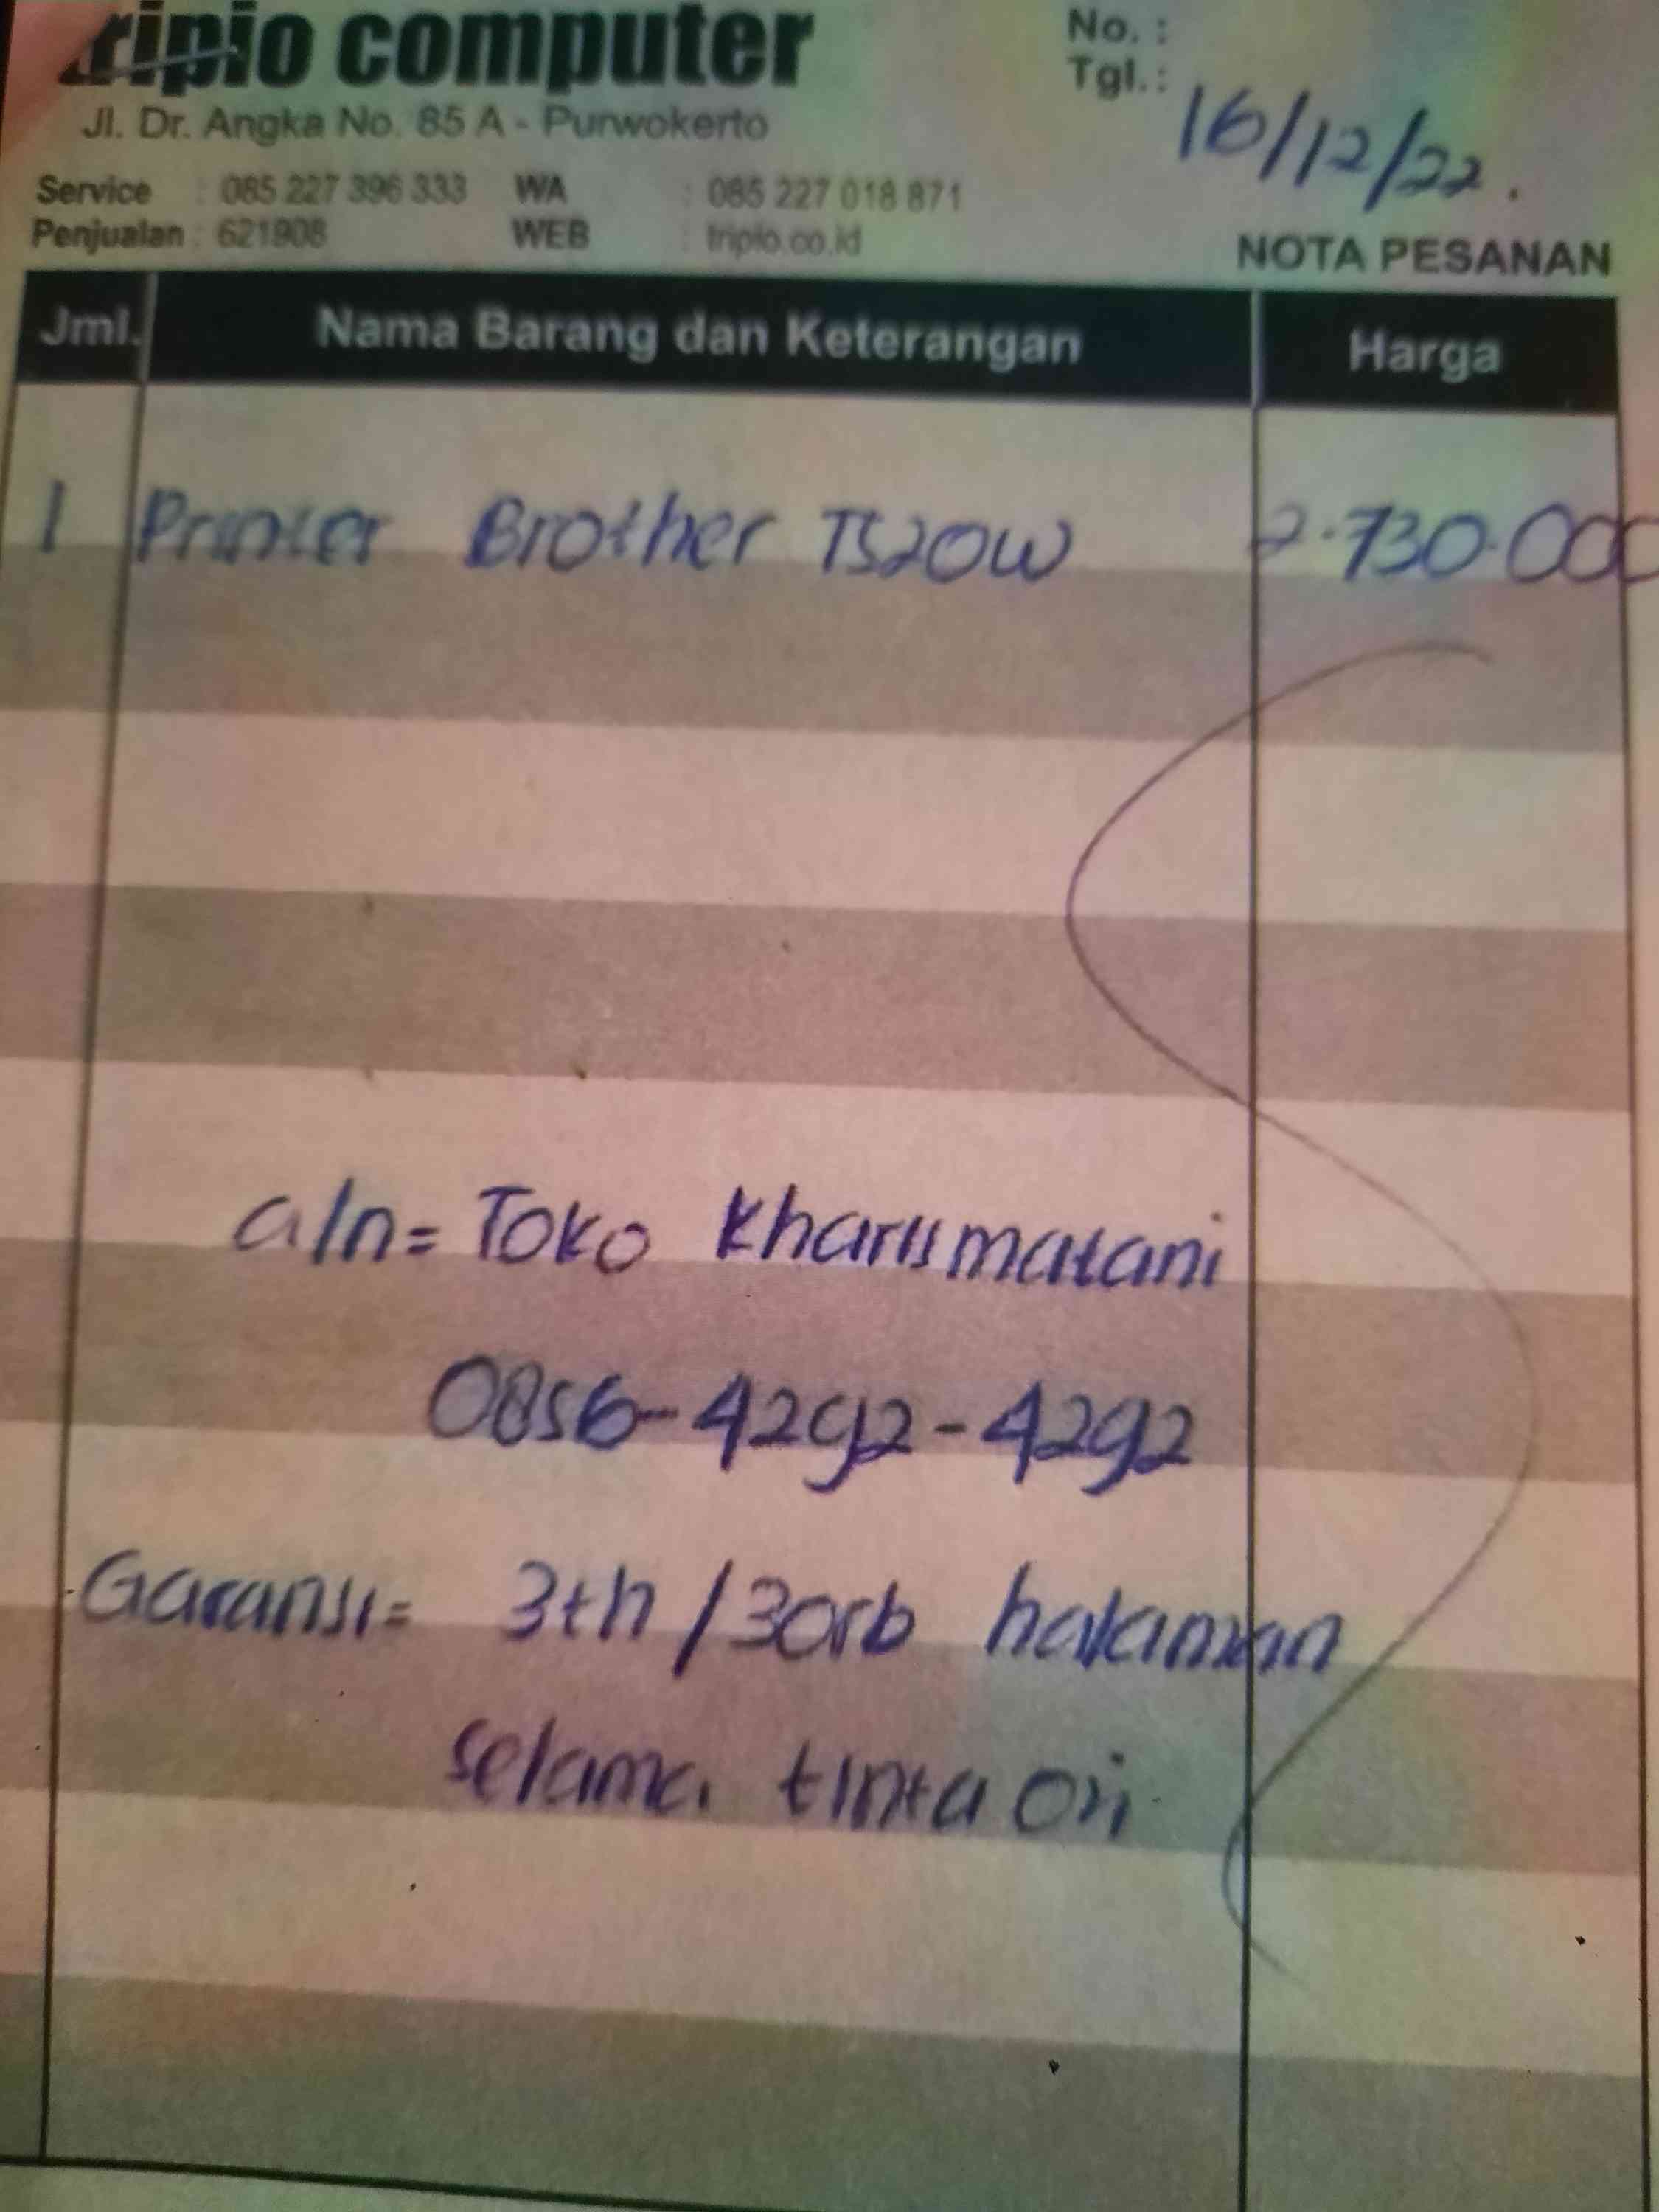 triplo computer
No. :
Tgl. : 16/12/22.
Jl. Dr. Angka No. 85 A - Purwokerto
Service : 085 227 396 333 WA : 085 227 018 871
Penjualan : 621908 WEB : triplo.co.id
NOTA PESANAN
Jml. Nama Barang dan Keterangan Harga
1 Printer Brother T520W 2.730.000
a/n = Toko Kharismatani
0856-4292-4292
Garansi = 3th / 30rb halaman
selama tinta ori